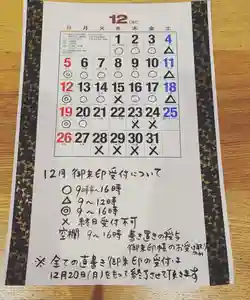 12
日 月 火 水 木 金 土
1 2 3 4
5 6 7 8 9 10 11
12 13 14 15 16 17 18
19 20 21 22 23 24 25
26 27 28 29 30 31
12月 御朱印受付について
○ 9時半〜16時
△ 9〜12時
◎ 9〜16時
× 終日受付不可
空欄 9〜16時 書き置きの授与
御朱印帳のお受け取り
※ 全ての直書き御朱印の受付は
12月20日(月)をもって終了させて頂きます